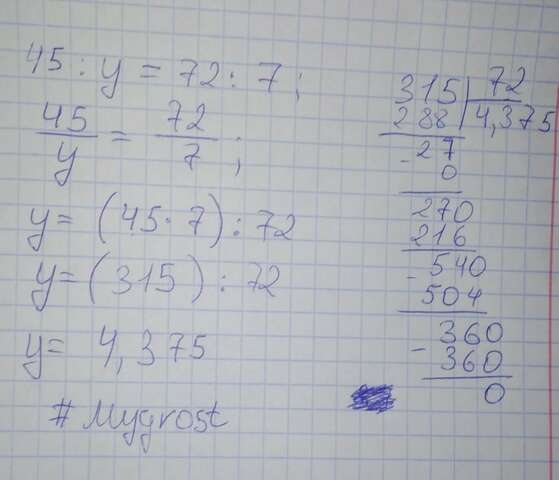 45 : y = 72 : 7 ;
45/y = 72/7 ;
y = (45 · 7) : 72
y = (315) : 72
y = 4,375
# Mygrost
315 | 72
288 | 4,375
- 27
0
270
216
- 540
504
- 360
360
0